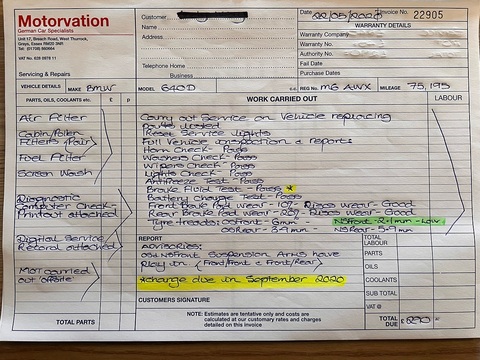 Motorvation
German Car Specialists
Unit 17, Breach Road, West Thurrock,
Grays, Essex RM20 3NR
Servicing & Repairs
Customer
Name
Address
Telephone Home
Business
Date 22/05/2020 Invoice No. 22905
WARRANTY DETAILS
Warranty Company
Warranty No.
Warranty Authority No.
Fail Date
Purchase Dates
VEHICLE DETAILS MAKE BMW MODEL 640D REG No. MG AWX MILEAGE 75,195
PARTS, OILS, COOLANTS etc. £ p WORK CARRIED OUT LABOUR
Air Filter
Cabin/Pollen
Filters (Pair)
Fuel Filter
Screen Wash
Diagnostic
Computer Check-
Printout attached
Digital Service
Record attached
MOT carried
out 'offsite'
TOTAL PARTS
Carry out Service on Vehicle replacing
parts listed
Reset Service Lights
Full Vehicle Inspection & report:
Horn Check - Pass
Washers Check - Pass
Wipers Check - Pass
Lights Check - Pass
Antifreeze Test - Pass
Brake Fluid Test - Pass *
Battery Charge Test - Pass
Front Brake Pad wear - 10% Discs wear - Good
Rear Brake Pad wear - 20% Discs wear - Good
Tyre treads: OSFront - 6mm NSFront - 2-1mm - Low
OSRear - 3-4mm NSRear - 3-4mm
REPORT
ADVISORIES:
OS & NSFront Suspension Arms have
Play in. (Front/Front & Front/Rear)
*change due in September 2020
CUSTOMERS SIGNATURE
NOTE: Estimates are tentative only and costs are
calculated at our customary rates and charges
detailed on this invoice
TOTAL
LABOUR
PARTS
OILS
COOLANTS
SUB TOTAL
VAT @
TOTAL
DUE